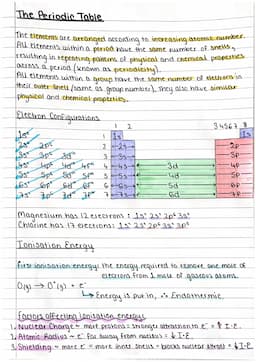 The Periodic Table
The elements are arranged according to increasing atomic number.
All elements within a period have the same number of shells,
resulting in repeating patterns of physical and chemical properties
across a period (known as periodicity).
All elements within a group have the same number of electrons in
their outer shell (same as group number). They also have similar
physical and chemical properties.
Electron Configurations
1 2 3 4 5 6 7 8
1s² 1 1s 1s
2s² 2p⁶ 2 2s 2p
3s² 3p⁶ 3d¹⁰ 3 3s 3p
4s² 4p⁶ 4d¹⁰ 4f¹⁴ 4 4s 3d 4p
5s² 5p⁶ 5d¹⁰ 5f¹⁴ 5 5s 4d 5p
6s² 6p⁶ 6d¹⁰ 6 6s 5d 6p
7s² 7 7s 6d 7p
Magnesium has 12 electrons : 1s² 2s² 2p⁶ 3s²
Chlorine has 17 electrons: 1s² 2s² 2p⁶ 3s² 3p⁵
Ionisation Energy
First ionisation energy: the energy required to remove one mole of
electrons from 1 mole of gaseous atoms.
O(g) → O⁺(g) + e⁻
Energy is put in, ∴ Endothermic.
Factors affecting ionisation energy
1. Nuclear Charge - more protons = stronger attraction to e⁻ = ↑ I.E.
2. Atomic Radius - e⁻ far away from nucleus = ↓ I.E.
3. Shielding - more e⁻ = more inner shells = blocks nuclear attract = ↓ I.E.